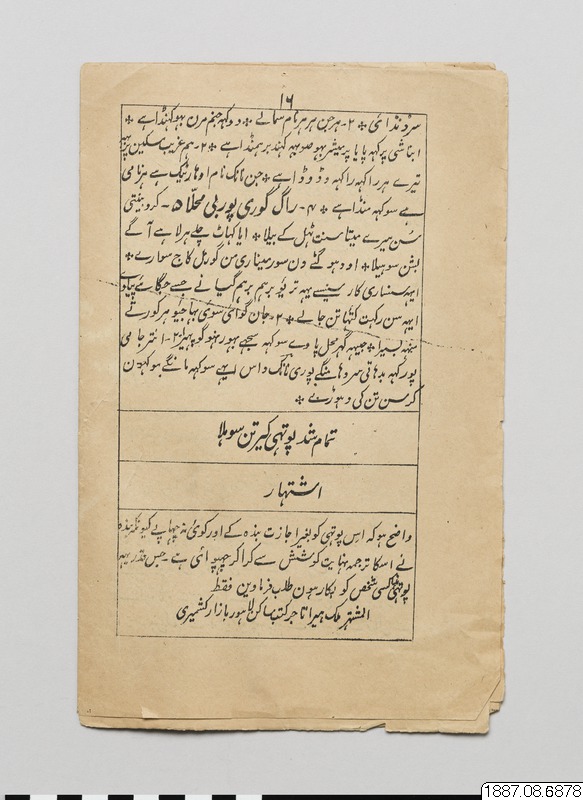 ۱۶
سر ڈنڈا ئی ٭ ۲- ہرجن ہر ہر نام سمانے ٭ دوکہہ جنم مرن بہو کہنڈا ہے ٭
ابناشی پرکہہ پایا پرمیشر بہو سوبہہ کہنڈ برہمنڈا ہے ٭ ۳- ہم غریب مسکین پربہہ
تیرے ہر راکہہ راکہہ وڈ وڈا ہے ٭ جن نانک نام اوہار ٹیک ہے ہر نامی
ہے سوکہہ منڈا ہے ٭ ۴- راگ گوری پوربی محلّا ۵ - کرو بینتی
سُن میرے میتا سنت ٹہل کے بیلا ٭ ایہا کہاٹ چلے ہر لاہے آ گے
بشن سوہیلا ٭ اودہ گہٹے دن سور مینا ری من گور مل کاج سوارے ٭
ایہہ سنسار بکار سنسے مہہ تریو برہم گیانے جسے جگائے پیاوے
ایہہ رس کتہا تن جانے ٭ ۲- جاں کو آئے سوئی بہاجیو ہر گور تے
منہہ بسیرا ٭ جیہہ گہر محل پاوے سوکہہ سہجے بہور نہوگو پہیرا - ۳- انتر جامی
پورکہہ بدہاتی سردہا من کی پوری نانک داس ایہے سوکہہ مانگے مو کہو ن
کر سن تن کی دہوڑے ٭
تمام شد پوتہی کیرتن سوہلا
اشتہار
واضح ہو کہ اس پوتہی کو بغیر اجازت بندہ کے اور کوئی نہ چہاپے کیونکہ بندہ
نے اسکا ترجمہ نہایت کوشش سے کرا کر چہپوائی ہے - جس قدر یہہ
پوتہی کسی شخص کو بکار ہون طلب فرماوین فقط
المشتہر ملک ہیرا تاجر کتب ساکن لاہور بازار کشمیری
1887.08.6878